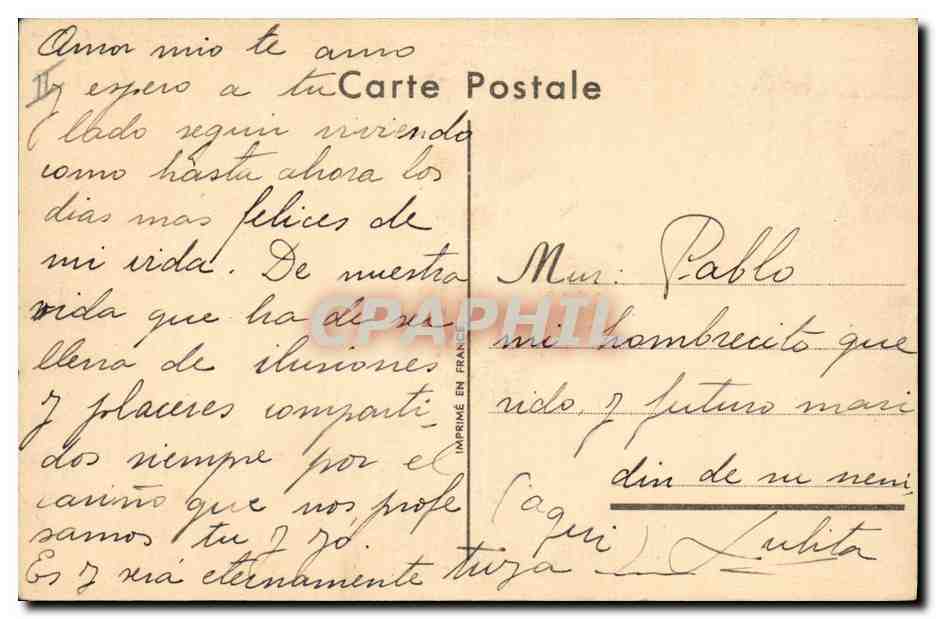 Amor mio te amo
II
y espero a tu
lado seguir viviendo
como hasta ahora los
dias mas felices de
mi vida. De nuestra
vida que ha de ser
llena de ilusiones
y placeres comparti-
dos siempre por el
cariño que nos profe
samos tu y yó.
Es y será eternamente tuya
Carte Postale
IMPRIMÉ EN FRANCE
CPAPHIL
Mur: Pablo
mi hombrecito que
rido, y futuro mari
din de su neni-
(aqui) Lulita